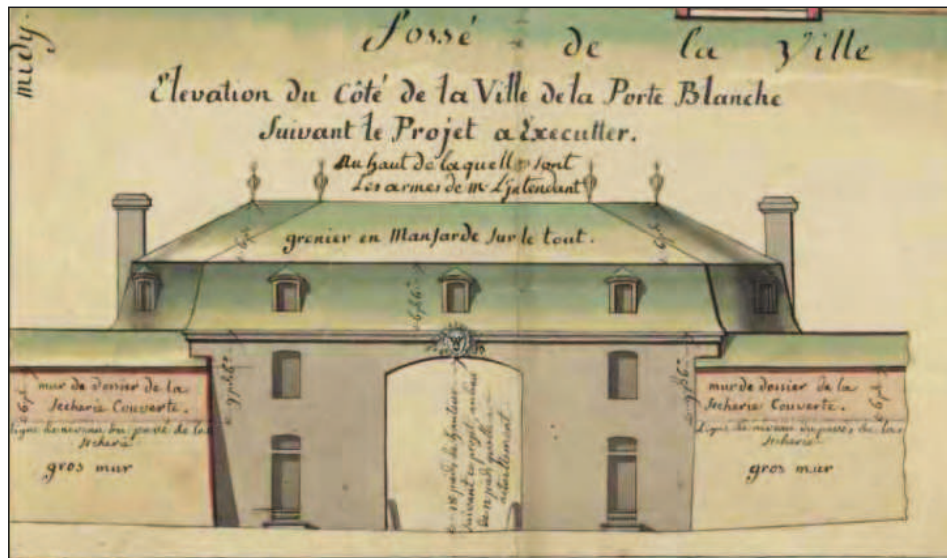 midy.
fossé de la Ville
Elevation du Côté de la Ville de la Porte Blanche
Suivant le Projet a Executter.
Au haut de laquelle sont
Les armes de mr Ljntendant
grenier en Mansarde sur le tout.
mur de dossier de la
secherie Couverte.
Ligne de niveau du pavé de la
secherie
gros mur
de 18 pieds de hauteur
suivant ce projet au lieu
de 12 pieds quelle a
actuellement
mur de dossier de la
secherie Couverte.
Ligne de niveau du pavé de la
secherie
gros mur